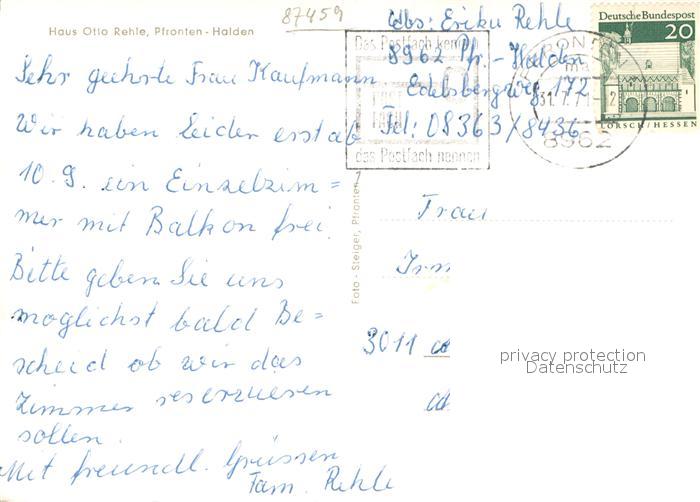 Haus Otto Rehle, Pfronten - Halden
87459
Abs: Erika Rehle
8962 Pfr.-Halden
Edelsbergweg 172
Tel: 08363/8436
Deutsche Bundespost
20
LORSCH/HESSEN
Das Postfach kennen
das Postfach nennen
31.7.71-12
8962
Sehr geehrte Frau Kaufmann
Wir haben leider erst ab
10.9. ein Einzelzim=
mer mit Balkon frei.
Bitte geben Sie uns
möglichst bald Be=
scheid ob wir das
Zimmer reservieren
sollen.
Mit freundl. Grüssen
Fam. Rehle
Foto - Steiger, Pfronten
Frau
Irm
3011
privacy protection
Datenschutz